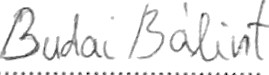 Budai Bálint